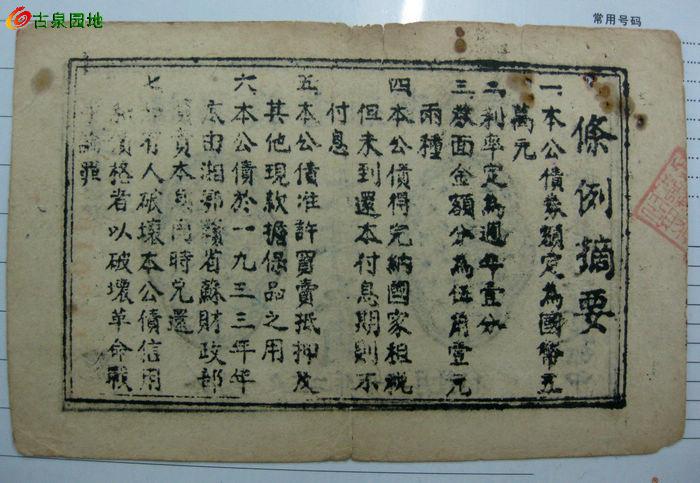 古泉园地
常用号码
條例摘要
一本公債數額定為國幣五
萬元
二利率定為週年壹分
三數面金額分為伍角壹元
兩種
四本公債得完納國家租稅
但未到還本付息期則不
付息
五本公債准許買賣抵押及
其他現款擔保品之用
六本公債於一九三三年年
底由湘鄂贛省蘇財政部
責本息同時兌還
七如有人破壞本公債信用
和價格者以破壞革命戰
爭論罪